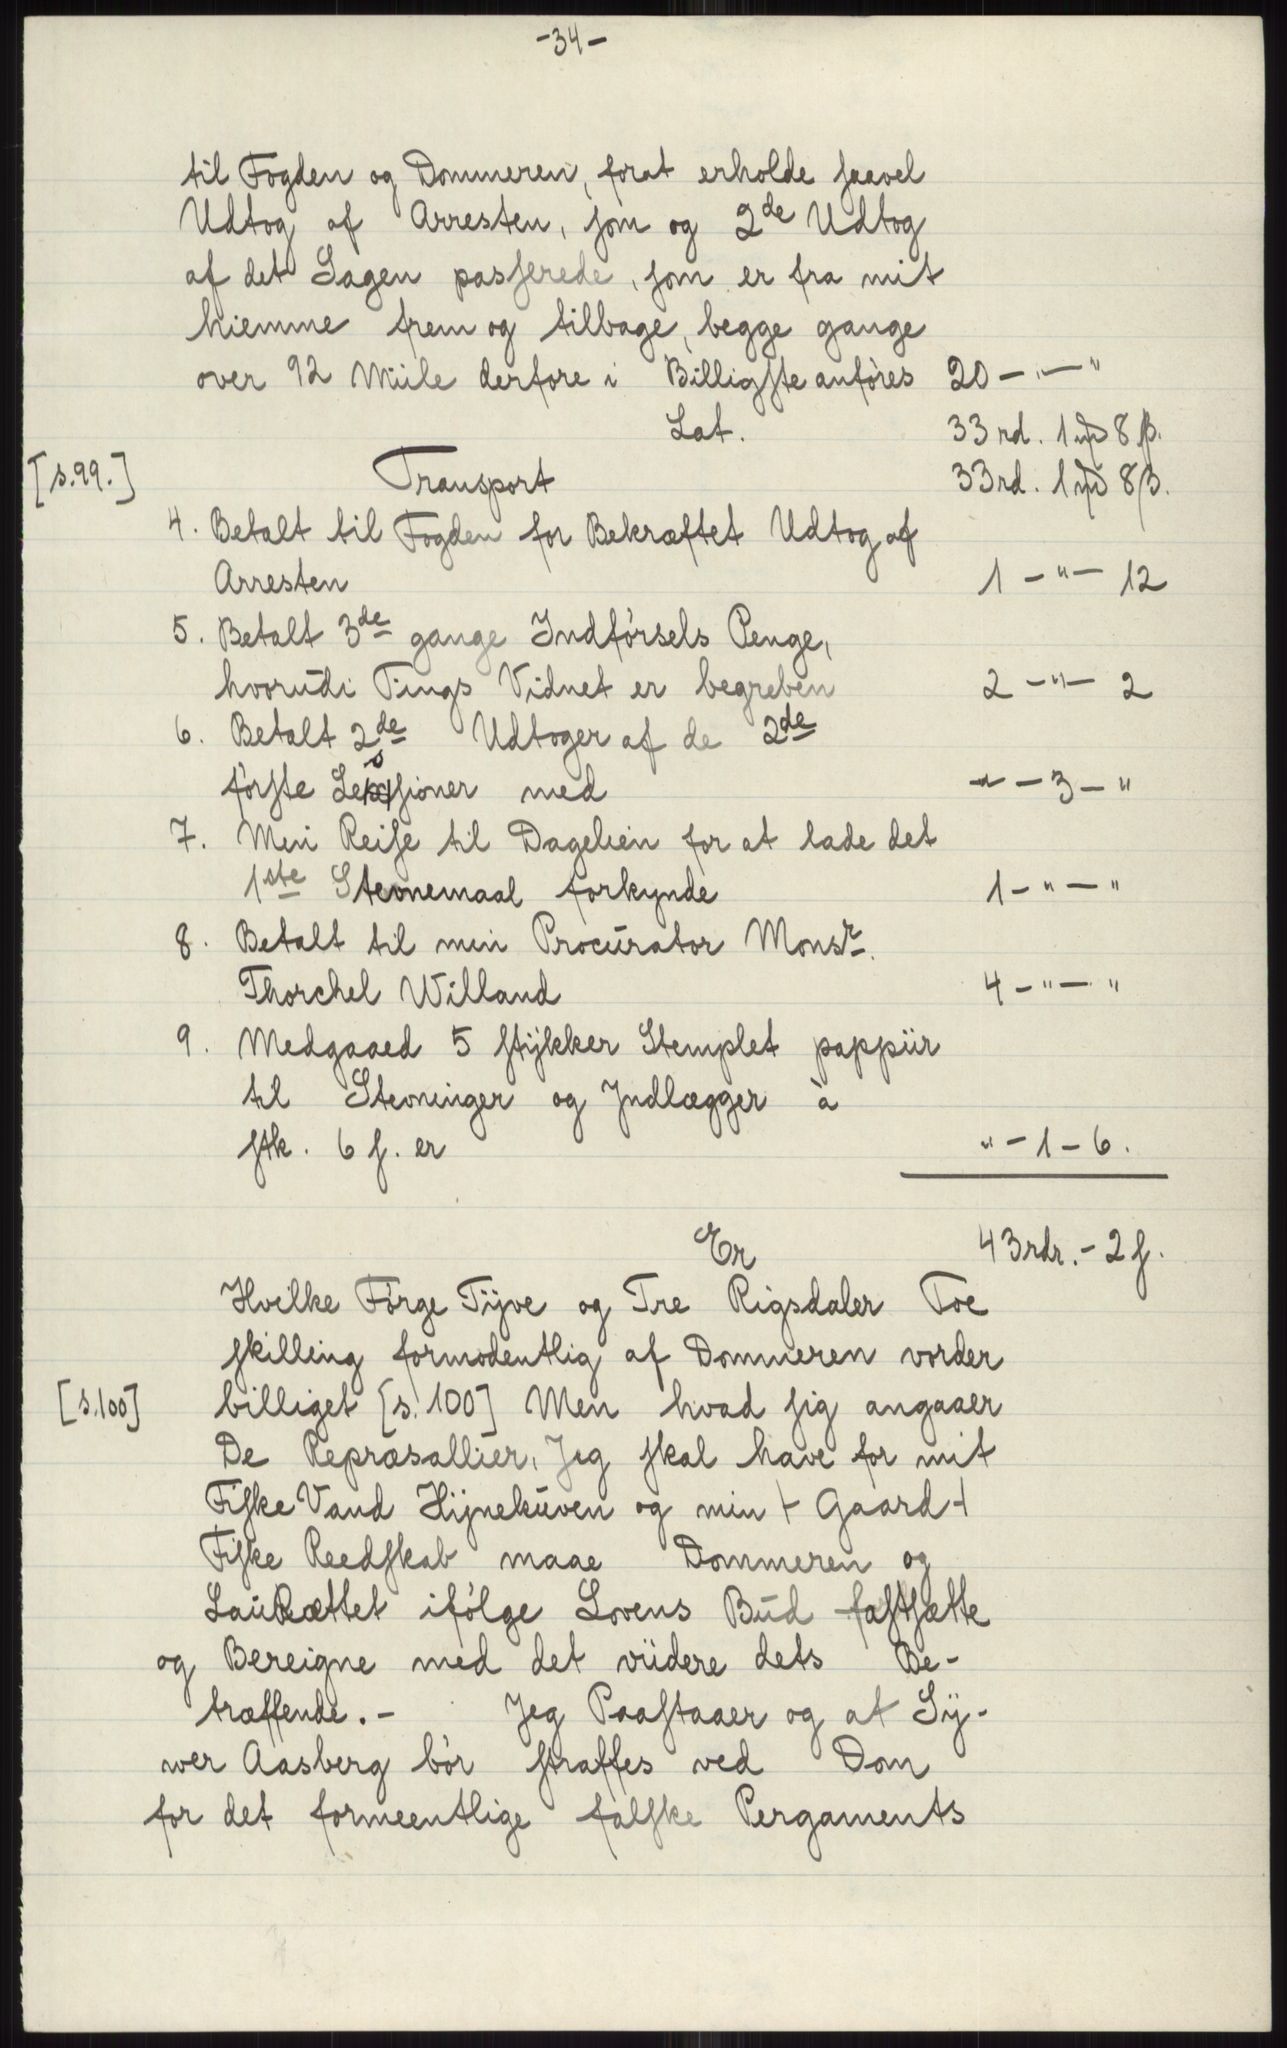 -34-
til Fogden og Dommeren, forat erholde saavel
Udtog af Arresten, som og 2de Udtog
af det Sagen passerede, som er fra mit
hiemme frem og tilbage, begge gange
over 92 Miile derfore i Billigste anføres 20 - " - "
Lat. 33 rd. 1 mþ 8 β.
[s.99.] Transport 33 rd. 1 mþ 8 β.
4. Betalt til Fogden for Bekræftet Udtog af
Arresten 1 - " - 12
5. Betalt 3de gange Indførsels Penge,
hvorudi Tings Vidnet er begreben 2 - " - 2
6. Betalt 2de Udtoger af de 2de
første Sessioner med " - 3 - "
7. Min Reise til Dagelien for at lade det
1ste Stevnemaal forkynde 1 - " - "
8. Betalt til min Procurator Monsr.
Thorchel Willand 4 - " - "
9. Medgaaed 5 stÿkker Stemplet pappiir
til Stevninger og Indlægger à
stk. 6 s. er " - 1 - 6.
Er 43 rdr. - 2 s.
Hvilke Førge Tÿve og Tre Rigsdaler Toe
skilling formodentlig af Dommeren vorder
[s.100] billiget [s. 100] Men hvad sig angaaer
De Repræsallier, Jeg skal have for mit
Fiske Vand Hijnekuven og min + Gaard +
Fiske Reedskab maae Dommeren og
LauRættet ifølge Lovens Bud fastsætte
og Bereigne med det viidere dets Be-
træffende. - Jeg Paastaaer og at Sÿ-
wer Aasberg bør straffes ved Dom
for det formeentlige falske Pergaments